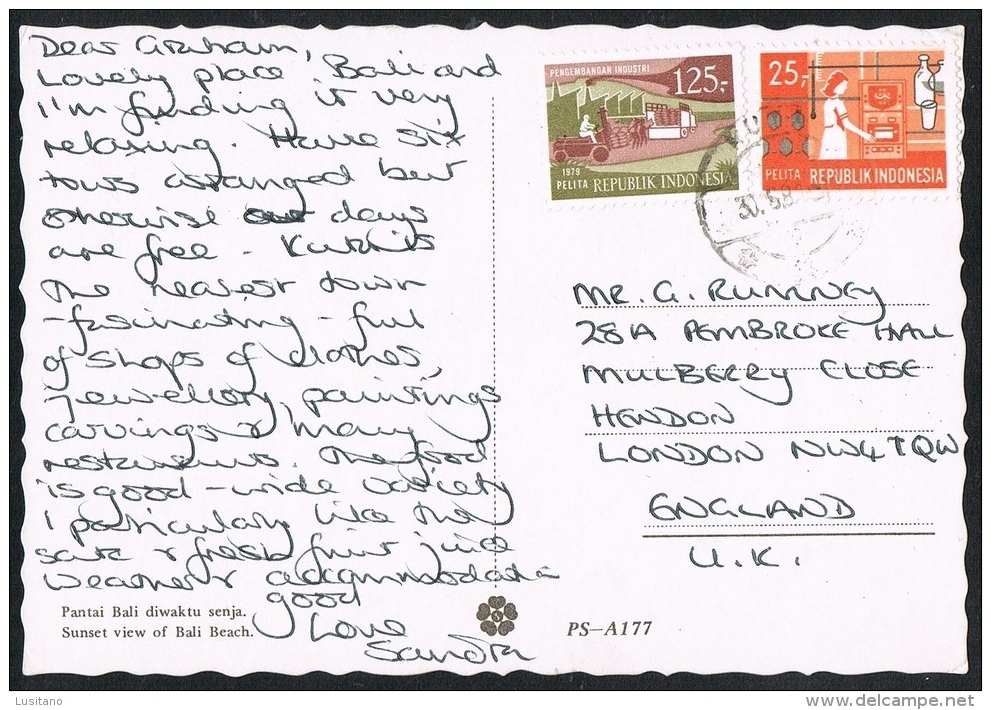 Dear Graham,
Lovely place, Bali and
I'm finding it very
relaxing. Have six
tours arranged but
otherwise our days
are free - Kuta is
the nearest town
- fascinating - full
of shops of clothes,
jewellery, paintings
carvings & many
restaurants. The food
is good - wide variety
I particularly like the
sate & fresh fruit juice
Weather & accommodation
good
Love
Sandra
Pantai Bali diwaktu senja.
Sunset view of Bali Beach.
PS-A177
PENGEMBANGAN INDUSTRI
125,-
1979
PELITA REPUBLIK INDONESIA
25,-
PELITA REPUBLIK INDONESIA
30.5.8
MR. G. RUMNEY
28A PEMBROKE HALL
MULBERRY CLOSE
HENDON
LONDON NW4 1QW
ENGLAND
U.K.
Lusitano
www.delcampe.net